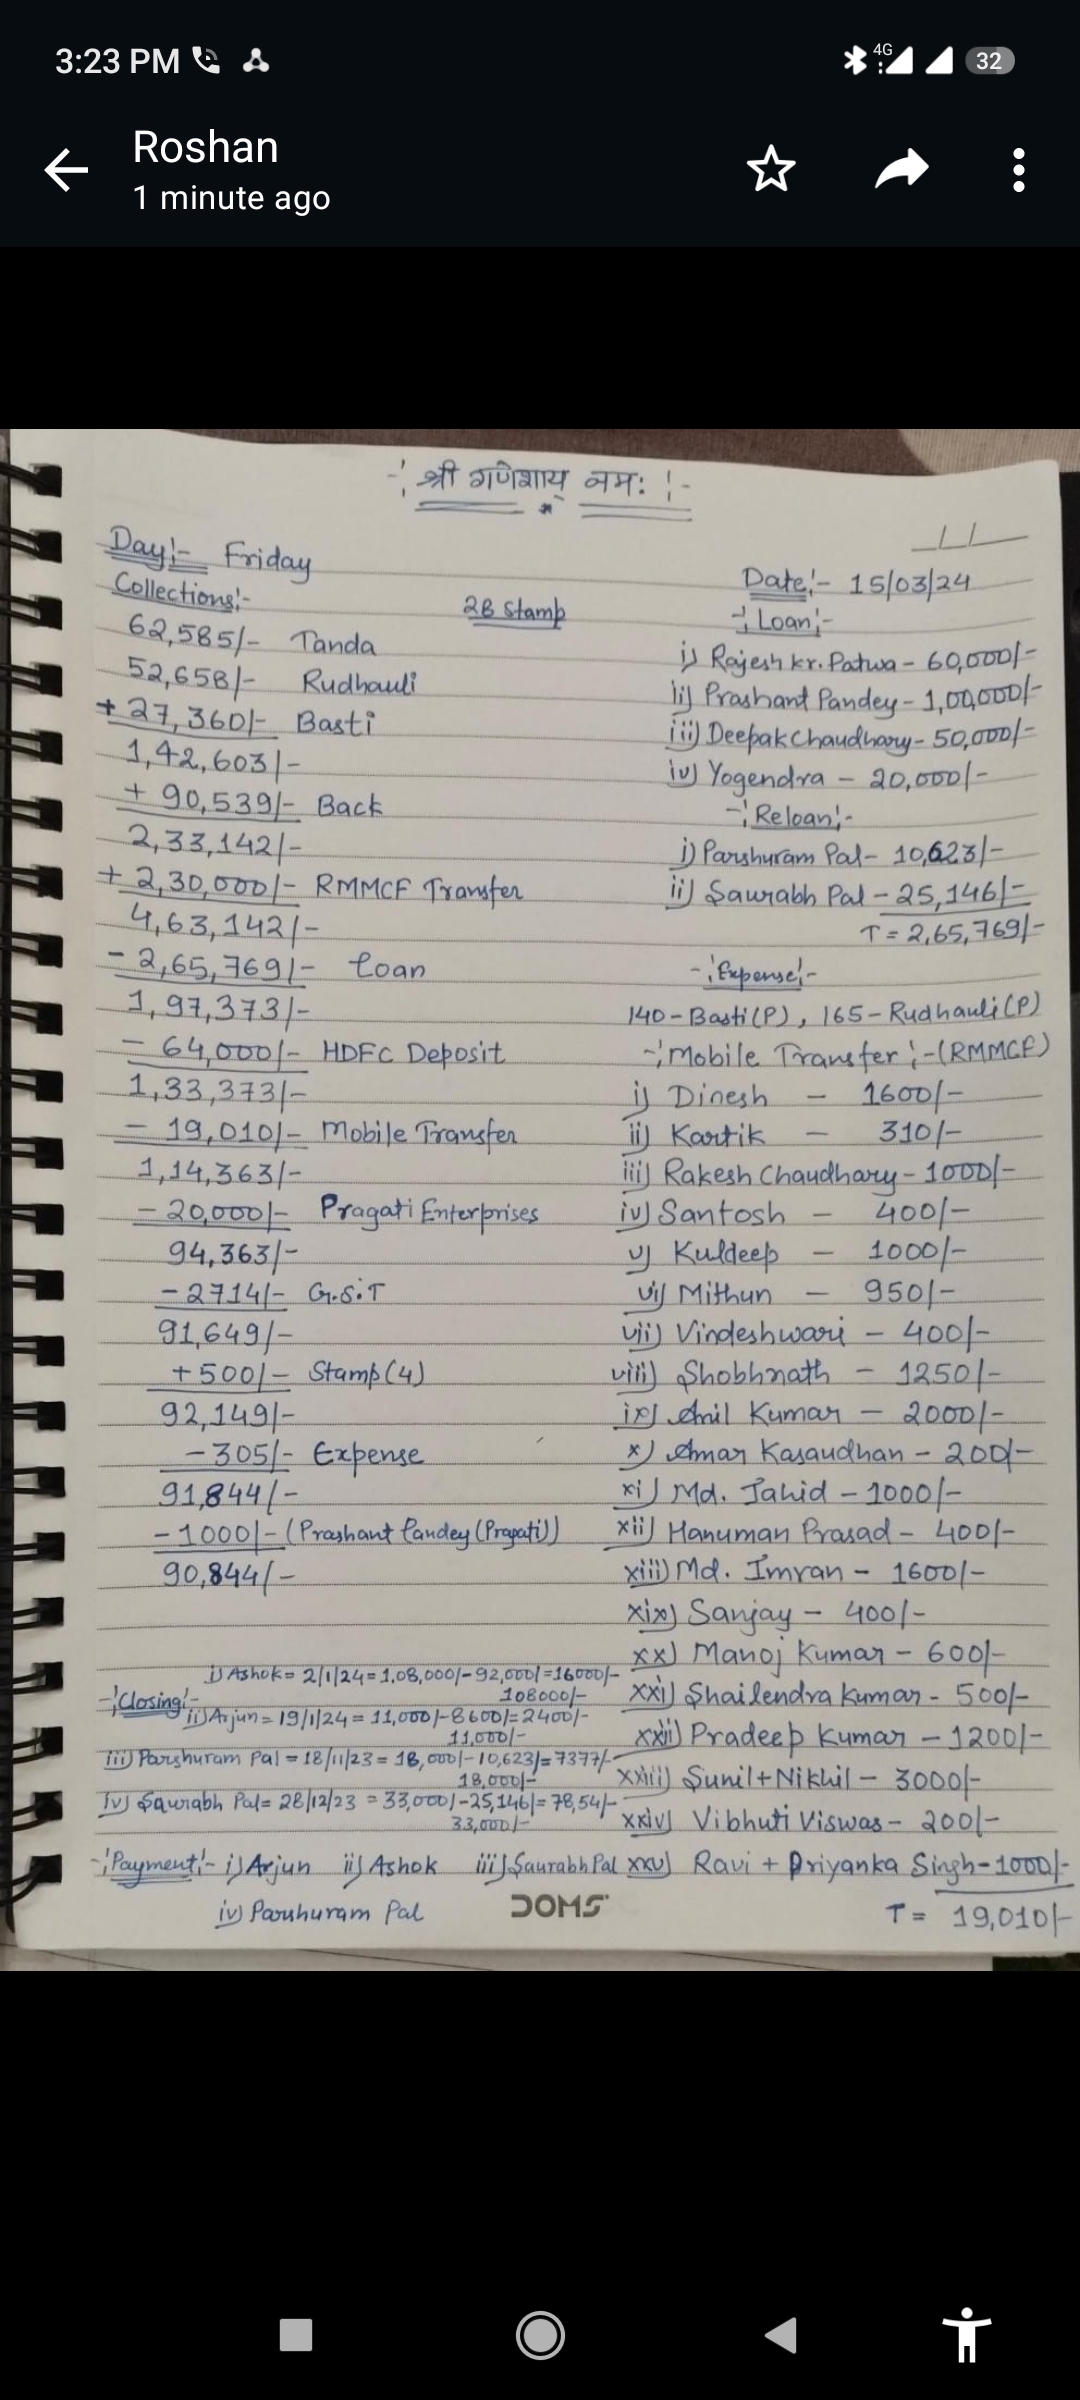 3:23 PM
4G
32
Roshan
1 minute ago
-: श्री गणेशाय् नमः :-
Day:- Friday
Date:- 15/03/24
Collections:-
28 Stamp
62,585/- Tanda
52,658/- Rudhauli
+ 27,360/- Basti
1,42,603/-
+ 90,539/- Back
2,33,142/-
+ 2,30,000/- RMMCF Transfer
4,63,142/-
- 2,65,769/- Loan
1,97,373/-
- 64,000/- HDFC Deposit
1,33,373/-
- 19,010/- Mobile Transfer
1,14,363/-
- 20,000/- Pragati Enterprises
94,363/-
- 2714/- G.S.T
91,649/-
+ 500/- Stamp (4)
92,149/-
- 305/- Expense
91,844/-
- 1000/- (Prashant Pandey (Pragati))
90,844/-
-: Loan:-
i) Rajesh kr. Patwa - 60,000/-
ii) Prashant Pandey - 1,00,000/-
iii) Deepak Chaudhary - 50,000/-
iv) Yogendra - 20,000/-
-: Reloan:-
i) Parshuram Pal - 10,623/-
ii) Saurabh Pal - 25,146/-
T = 2,65,769/-
-: Expense:-
140 - Basti (P), 165 - Rudhauli (P)
-: Mobile Transfer :- (RMMCF)
i) Dinesh - 1600/-
ii) Kartik - 310/-
iii) Rakesh Chaudhary - 1000/-
iv) Santosh - 400/-
v) Kuldeep - 1000/-
vi) Mithun - 950/-
vii) Vindeshwari - 400/-
viii) Shobhnath - 1250/-
ix) Anil Kumar - 2000/-
x) Amar Kasaudhan - 200/-
xi) Md. Jahid - 1000/-
xii) Hanuman Prasad - 400/-
xiii) Md. Imran - 1600/-
xix) Sanjay - 400/-
xx) Manoj Kumar - 600/-
xxi) Shailendra Kumar - 500/-
xxii) Pradeep Kumar - 1200/-
xxiii) Sunil + Nikhil - 3000/-
xxiv) Vibhuti Viswas - 200/-
xxv) Ravi + Priyanka Singh - 1000/-
T = 19,010/-
-: Closing:-
i) Ashok = 2/1/24 = 1,08,000/- 92,000/= 16000/-
108000/-
ii) Arjun = 19/1/24 = 11,000/- 8600/= 2400/-
11,000/-
iii) Parshuram Pal = 18/11/23 = 18,000/- 10,623/= 7377/-
18,000/-
iv) Saurabh Pal = 28/12/23 = 33,000/- 25,146/= 78,54/-
33,000/-
-: Payment:- i) Arjun ii) Ashok iii) Saurabh Pal
iv) Parshuram Pal
DOMS